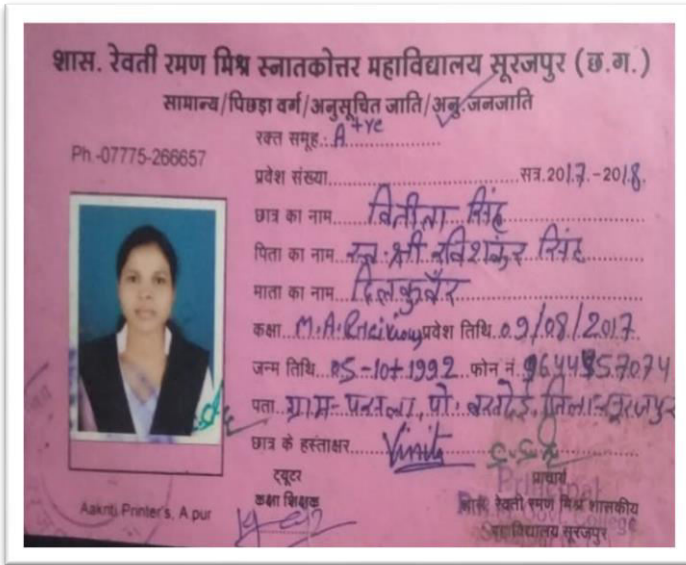 शास. रेवती रमण मिश्र स्नातकोत्तर महाविद्यालय सूरजपुर (छ.ग.)
सामान्य/पिछड़ा वर्ग/अनुसूचित जाति/अनु.जनजाति
रक्त समूह: A +ve
Ph.-07775-266657
प्रवेश संख्या.................... सत्र.2017.-2018.
छात्र का नाम.... सिंह
पिता का नाम. स्व. श्री रविशंकर सिंह
माता का नाम. दिलकुवँर
कक्षा. M.A. प्रवेश तिथि. 09/08/2017
जन्म तिथि. 05-10-1992 फोन नं.
पता. ग्राम- पो. जिला-सूरजपुर
छात्र के हस्ताक्षर.... Vinita
ट्यूटर
कक्षा शिक्षक
प्राचार्य
Principal
शास. रेवती रमण मिश्र शासकीय
महाविद्यालय सूरजपुर
Aakriti Printer's, A.pur